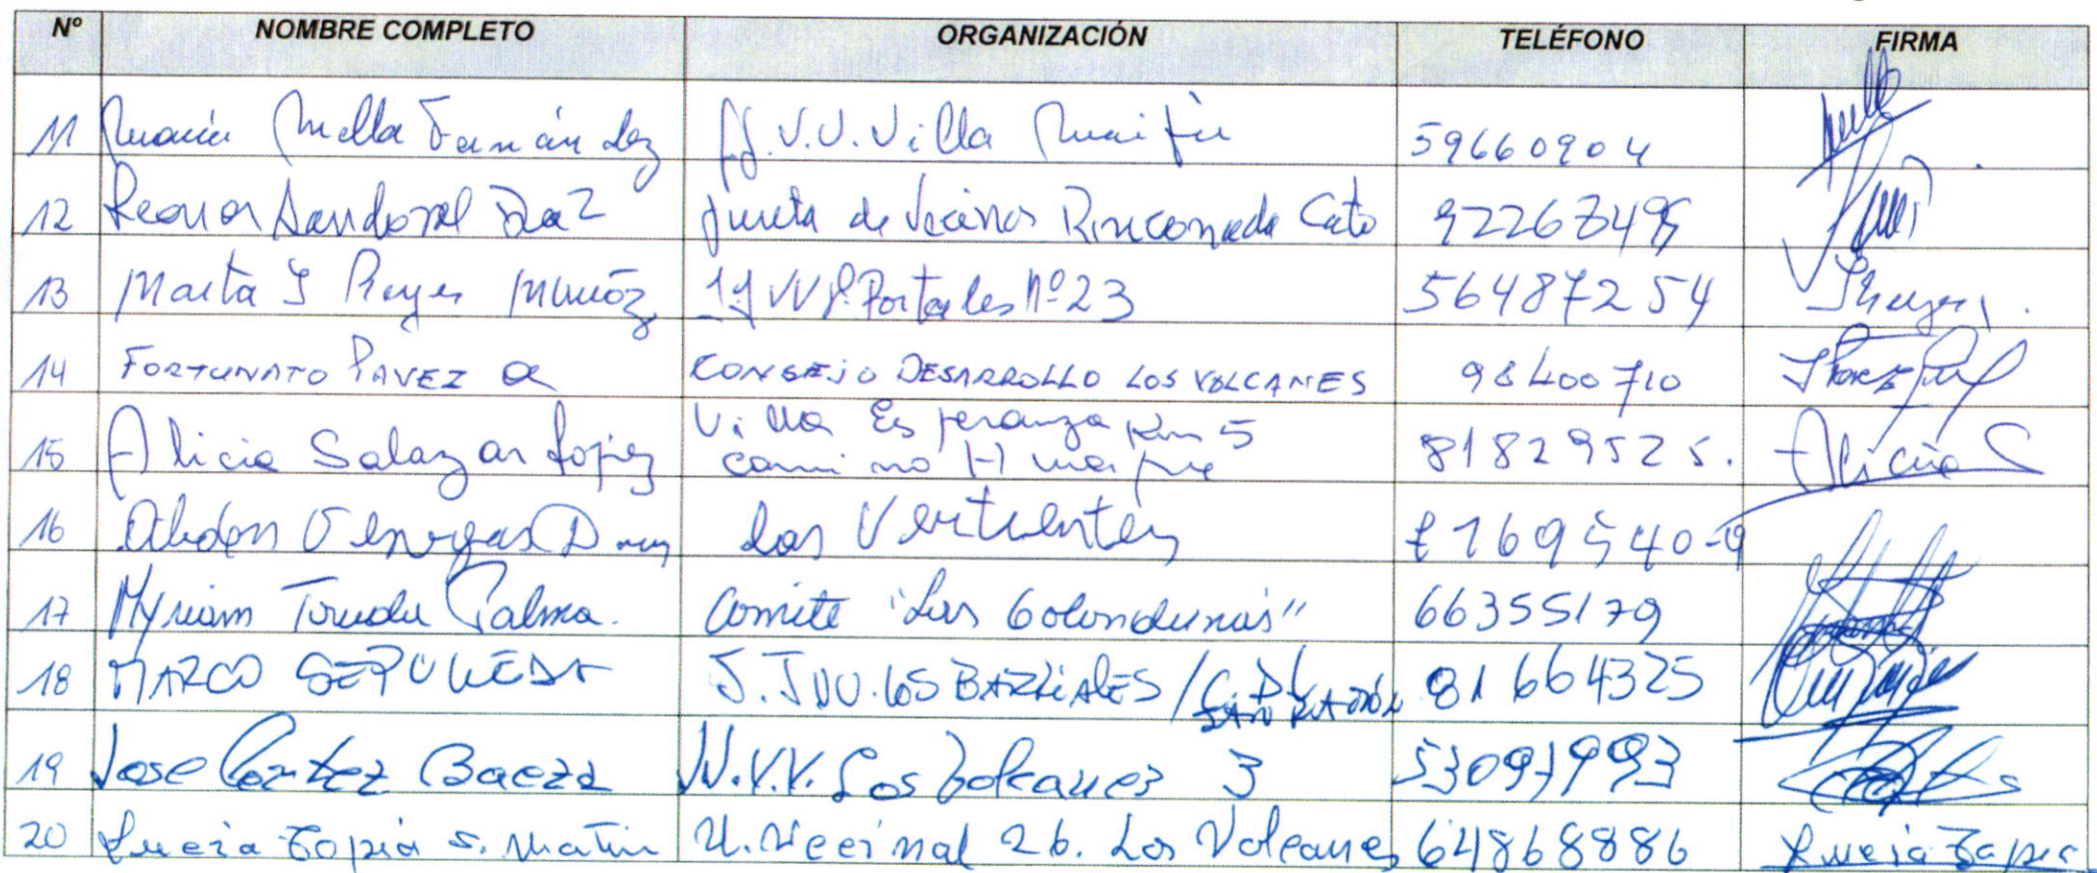 Nº NOMBRE COMPLETO ORGANIZACIÓN TELÉFONO FIRMA
11 María Mella Fernández JJ.V.V. Villa 59660904
12 Leonor Sandoval Díaz Junta de Vecinos Rinconada Cato 92267349
13 Marta I Reyes Muñoz JJ VV P. Portales Nº 23 564872 54
14 FORTUNATO PAVEZ CONSEJO DESARROLLO LOS VOLCANES 98400710
15 Alicia Salazar Lopez Villa Esperanza Km 5 81829525. Alicia S
camino Huape
16 Abdon Venegas Las Vertientes 7695540-9
17 Myriam Palma. Comite "Las Golondrinas" 66355179
18 MARCO SEPULVEDA J.JVV. LOS BARRIALES / 81664325
19 Jose Cortez Baeza JJ.V.V. Los Volcanes 3 53097993
20 Lucia Tapia S. Martin U. Vecinal 26. Los Volcanes 64868886 Lucia Tapia